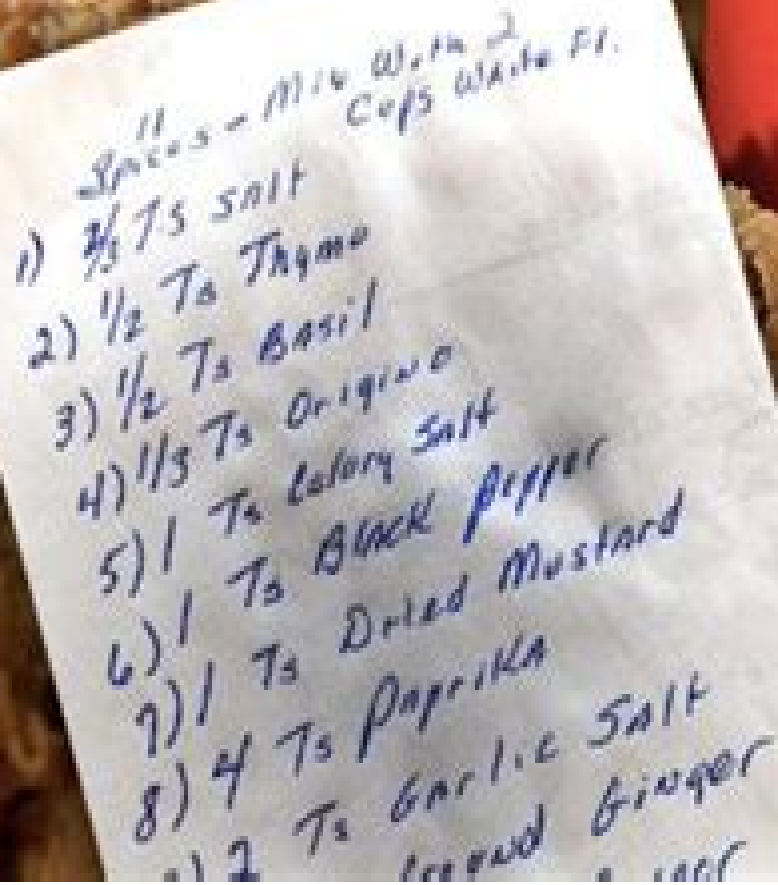 11
Spices - Mix With 2
Cups White Fl.
1) 2/3 Ts Salt
2) 1/2 Ts Thyme
3) 1/2 Ts Basil
4) 1/3 Ts Origino
5) 1 Ts Celery Salt
6) 1 Ts Black Pepper
7) 1 Ts Dried Mustard
8) 4 Ts Paprika
2 Ts Garlic Salt
Ground Ginger